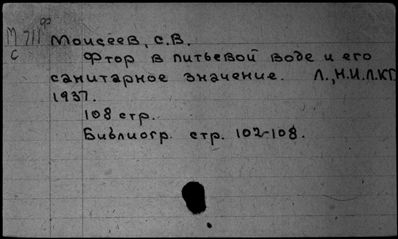 ф
М 711 Моисеев, С.В.
С Фтор в питьевой воде и его
санитарное значение. Л., Н.И.Л.К.Г.
1937.
108 стр.
Библиогр. стр. 102-108.